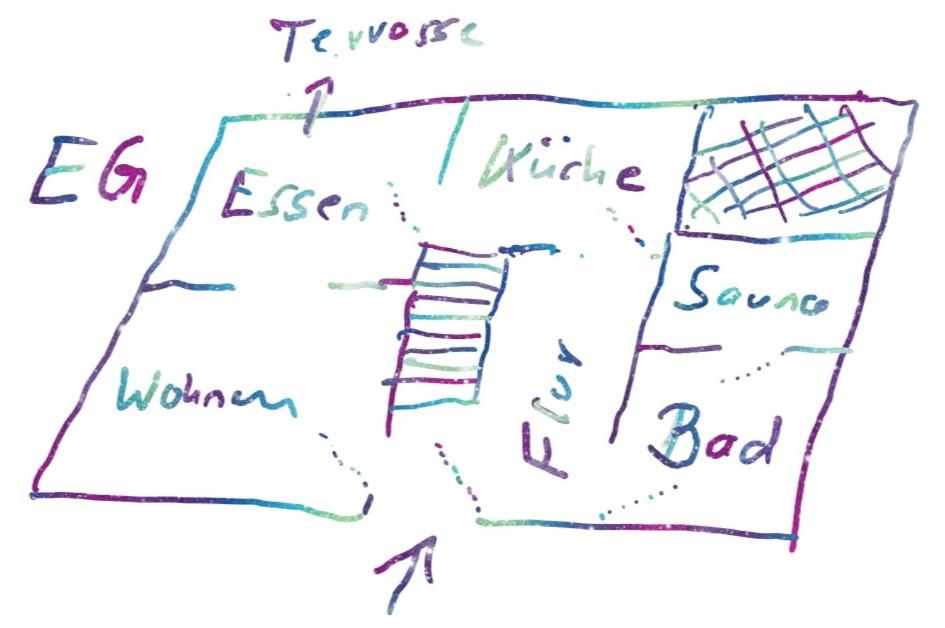 Terrasse
EG
Essen
Küche
Sauna
Wohnen
Flur
Bad